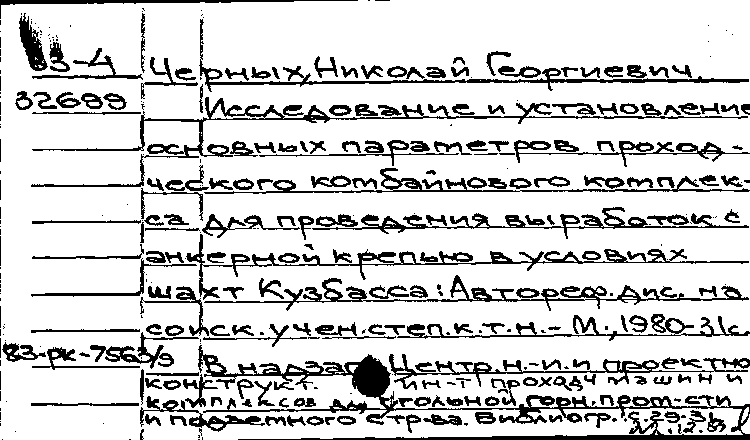 83-4
Черных, Николай Георгиевич.
32699
Исследование и установление
основных параметров проход-
ческого комбайнового комплек-
са для проведения выработок с
анкерной крепью в условиях
шахт Кузбасса: Автореф. дис. на
соиск. учен. степ. к.т.н. - М., 1980-31с.
83-рк-7563/9
В надзаг. Центр. н.-и. и проектно
конструкт. ин-т проходч машин и
комплексов для угольной, горн. пром-сти
и подземного стр-ва. Библиогр.: с. 29-31